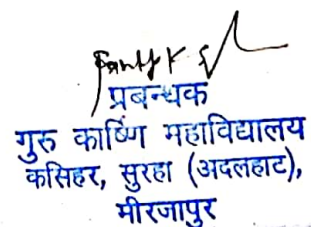 प्रबन्धक
गुरु कार्ष्णि महाविद्यालय
कसिहर, सुरहा (अदलहाट),
मीरजापुर